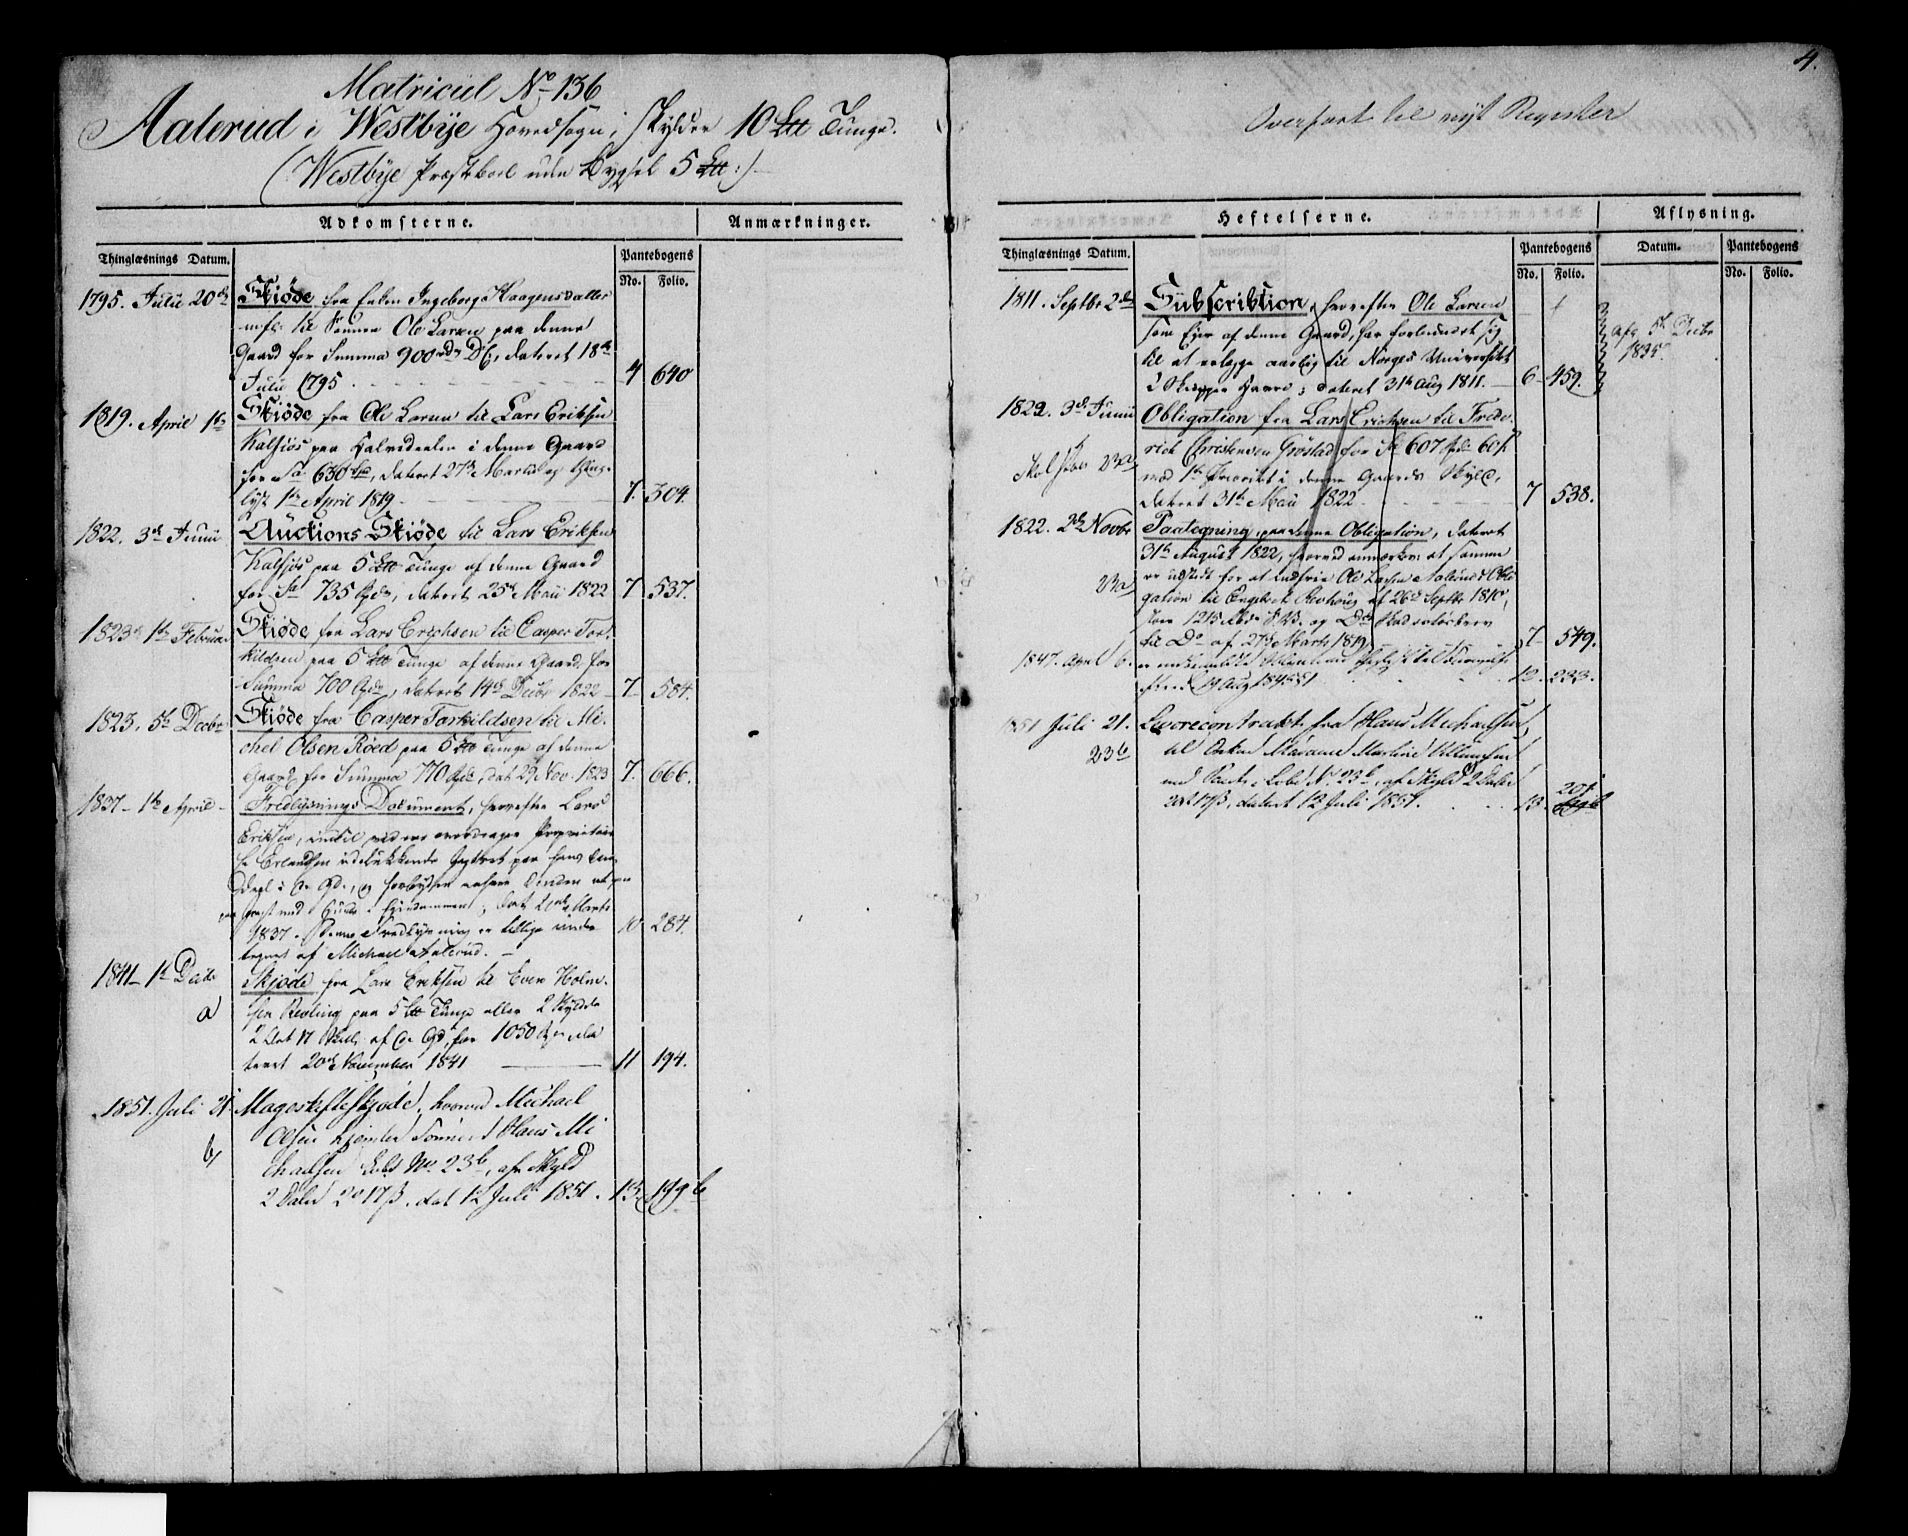 Matricul No 136
Aalerud i Westbÿe Hovedsogn, skylder 10 Ltt Tunge.
(Westbÿe Præsteboel uden Bygsel 5 Ltt:)
Adkomsterne. Anmærkninger.
Thinglæsnings Datum. Pantebogens
No. Folio.
1795. Julii 20de Skiøde fra Enken Ingeborg Haagensdatter
m: fl: til Sønnen Ole Larsen paa denne
Gaard for Summa 900 rdr DC, dateret 18de
Julii 1795 4 640
1819. April 1te Skiøde fra Ole Larsen til Lars Eriksen
Kalsiøs paa Halvedeelen i denne Gaard
for Sa 630 Spd, dateret 27de Marts og thing-
lyst 1te April 1819 7. 304.
1822. 3de Junii Auctions Skiøde til Lars Eriksen
Kalsiøs paa 5 Ltt Tunge af denne Gaard
for Sa 735 Spd, dateret 25de Maii 1822 7 537.
1823. 1te Februar Skiøde fra Lars Erichsen til Casper Tor-
kildsen paa 5 Ltt Tunge af denne Gaard for
Summa 700 Spd, dateret 14de Decbr 1822 7 584.
1823. 5te Decbr Skiøde fra Casper Torkildsen til Mi-
chel Olsen Røed paa 5 Ltt Tunge af denne
Gaard for Summa 770 Spd, dat 29 Nov. 1823 7. 666.
1837 - 1te April Fredlysnings Document, hvorefter Lars
Eriksen, indtil videre overdrager Proprietair
Erlandsen udelukkende Jagtret paa hans
Deel i
1837. Denne Fredlysning er tillige under- 10 284.
tegnet af Michael Aalerud.
1841 - 1te Decbr Skjøde fra Lars Eriksen til Even Holm-
a) sen Revling paa 5 Ltt Tunge eller 2 Skylddr
2 Ort 17 Skill. af Gd. for 1050 Spd, da-
teret 20de November 1841 11 194.
1851. Juli 21 Mageskifteskjøde, hvorved Michael
b) Olsen hjemler Sønnen Hans Mi-
chaelsen Løbe No 23b, af Skyld
2 Daler 2 o 17 ß. dat 12 Juli 1851. 13 199 b
4.
Overført til nyt Register
Heftelserne. Aflysning.
Thinglæsnings Datum. Pantebogens Datum. Pantebogens
No. Folio. No. Folio.
1811. Septbr 2de Subscribtion, hvorefter Ole Larsen
som Ejer af denne Gaard, har forbundet sig
til at erlægge aarlig til Norges Universitet
2 Skipper Havre; dateret 31te Aug 1811. 6 459. afl 5te Decbr
1835.
1822. 3de Junii Obligation fra Lars Erichsen til Frede-
rich Christensen Grøstad for Sa 607 Spd 60 ß
23a med 1te Prioritet i denne Gaards Skyld,
dateret 31te Maii 1822 7 538.
1822. 2de Novbr Paategning paa denne Obligation, dateret
31te August 1822, hvorved anmærkes at samme
23a er udstedt for at indfrie Ole Larsen Aaleruds Obli-
gation til Engebret Revhoug af 26de Septbr 1810,
stor 1215 Rbdr S.V. og Ds Skadesløsbrev
til Do af 27de Marts 1819. 7 549.
1847. April 6. 12. 233.
19 Aug 1845
1851 Juli 21. Levecontrakt fra Hans Michaelsen
23b til Enken Maren Martine
med Pant i Løbe No 23b, af Skyld 2 Daler
2 o 17 ß, dateret 12 Juli 1851. 13. 201